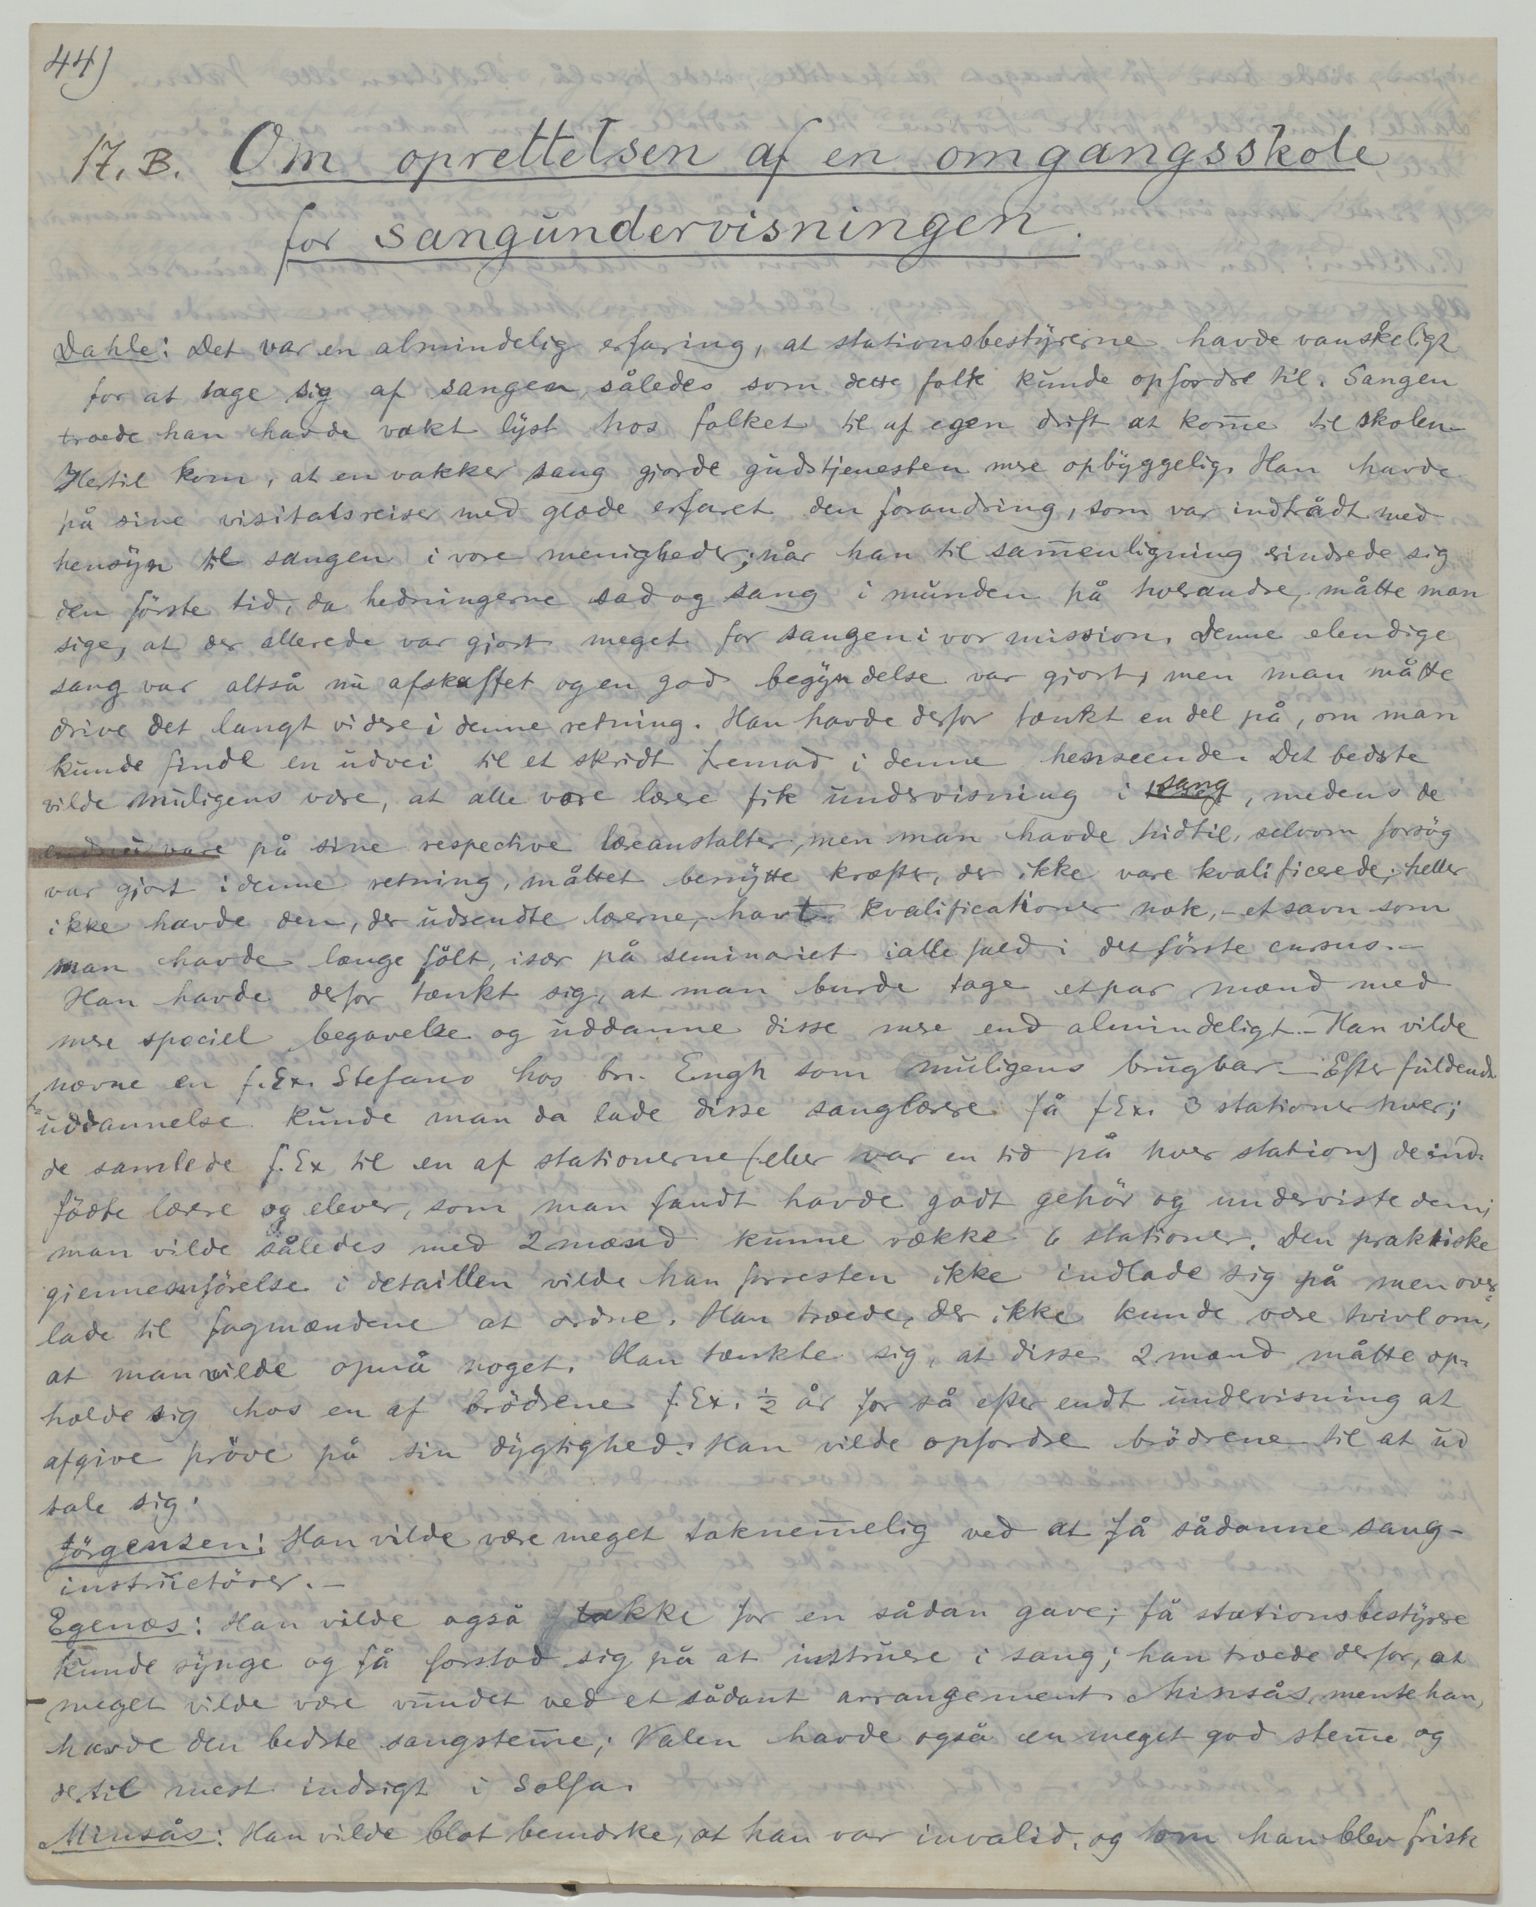 44)
17. B. Om oprettelsen af en omgangsskole
for sangundervisningen.
Dahle: Det var en almindelig erfaring, at stationsbestyrerne havde vanskeligt
for at tage sig af sangen således som dette folk kunde opfordre til. Sangen
troede han havde vakt lyst hos folket til af egen drift at kom̅e til skolen
Hertil kom, at en vakker sang gjorde gudstjenesten mere opbyggelig. Han havde
på sine visitatsreiser med glæde erfaret den forandring, som var indtrådt med
hensyn til sangen i vore menigheder; når han til sam̅enligning erindrede sig
den første tid, da hedningerne sad og sang i munden på hverandre, måtte man
sige, at der allerede var gjort meget for sangen i vor mission. Denne elendige
sang var altså nu afskaffet og en god begyndelse var gjort, men man måtte
drive det langt videre i denne retning. Han havde derfor tænkt en del på, om man
kunde finde en udvei til et skridt fremad i denne henseende. Det bedste
vilde muligens være, at alle vore lærere fik undervisning i sang, medens de
endnu vare på sine respective læreanstalter, men man havde hidtil, selvom forsøg
var gjort i denne retning, måttet benytte kræfter, der ikke vare kvalificerede; heller
ikke havde den, der udsendte lærerne, havt kvalificationer nok, - et savn som
man havde længe følt, især på seminariet i alle fald i det første cursus. -
Han havde derfor tænkt sig, at man burde tage et par mænd med
mere speciel begavelse og uddanne disse mere end almindeligt. - Han vilde
nævne en f. Ex. Stefano hos br. Engh som muligens brugbar. - Efter fuldendt
uddannelse kunde man da lade disse sanglærere få f Ex. 3 stationer hver;
de samlede f. Ex til en af stationerne (eller var en tid på hver station) de ind-
fødte lærere og elever, som man fandt havde godt gehør og underviste dem;
man vilde således med 2 mænd kunne række 6 stationer. Den praktiske
gjennemførelse i detaillen vilde han forresten ikke indlade sig på men over-
lade til fagmændene at ordne. Han troede, der ikke kunde være tvivl om,
at man vilde opnå noget. Han tænkte sig, at disse 2 mænd måtte op-
holde sig hos en af brødrene f. Ex. ½ år for så efter endt undervisning at
afgive prøve på sin dygtighed. Han vilde opfordre brødrene til at ud
tale sig.
Jørgensen: Han vilde være meget taknem̅elig ved at få sådanne sang-
instructører. -
Egenæs: Han vilde også takke for en sådan gave; få stationsbestyrere
kunde synge og få forstod sig på at instruere i sang; han troede derfor, at
meget vilde være vundet ved et sådant arrangement. Minsås, mente han,
havde den bedste sangstem̅e; Valen havde også en meget god stem̅e og
dertil mest indsigt i Solfa.
Minsås: Han vilde blot bemærke, at han var invalid, og om han blev frisk